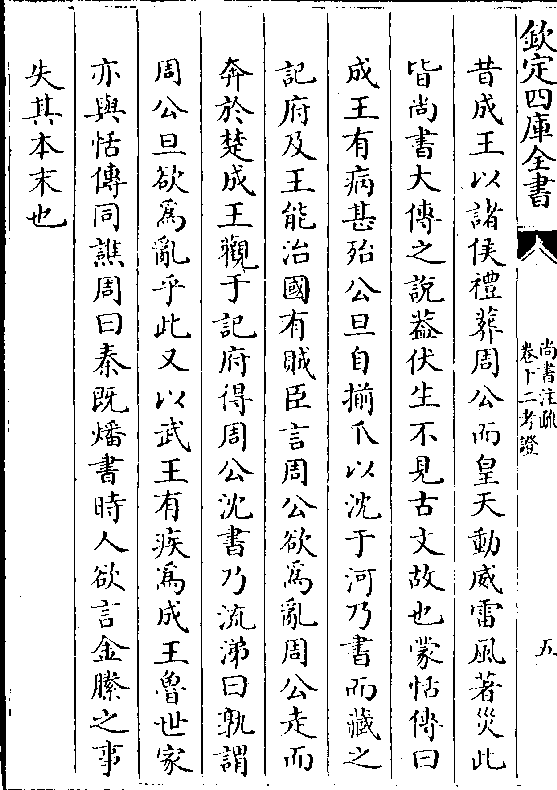 欽定四庫全書
尚書注疏
卷十二考證
五
昔成王以諸侯禮葬周公而皇天動威雷風著災此
皆尚書大傳之說葢伏生不見古文故也蒙恬傳曰
成王有病甚殆公旦自揃爪以沈于河乃書而藏之
記府及王能治國有賊臣言周公欲為亂周公走而
奔於楚成王觀于記府得周公沈書乃流涕曰孰謂
周公旦欲為亂乎此又以武王有疾為成王魯世家
亦與恬傳同譙周曰秦既燔書時人欲言金縢之事
失其本末也